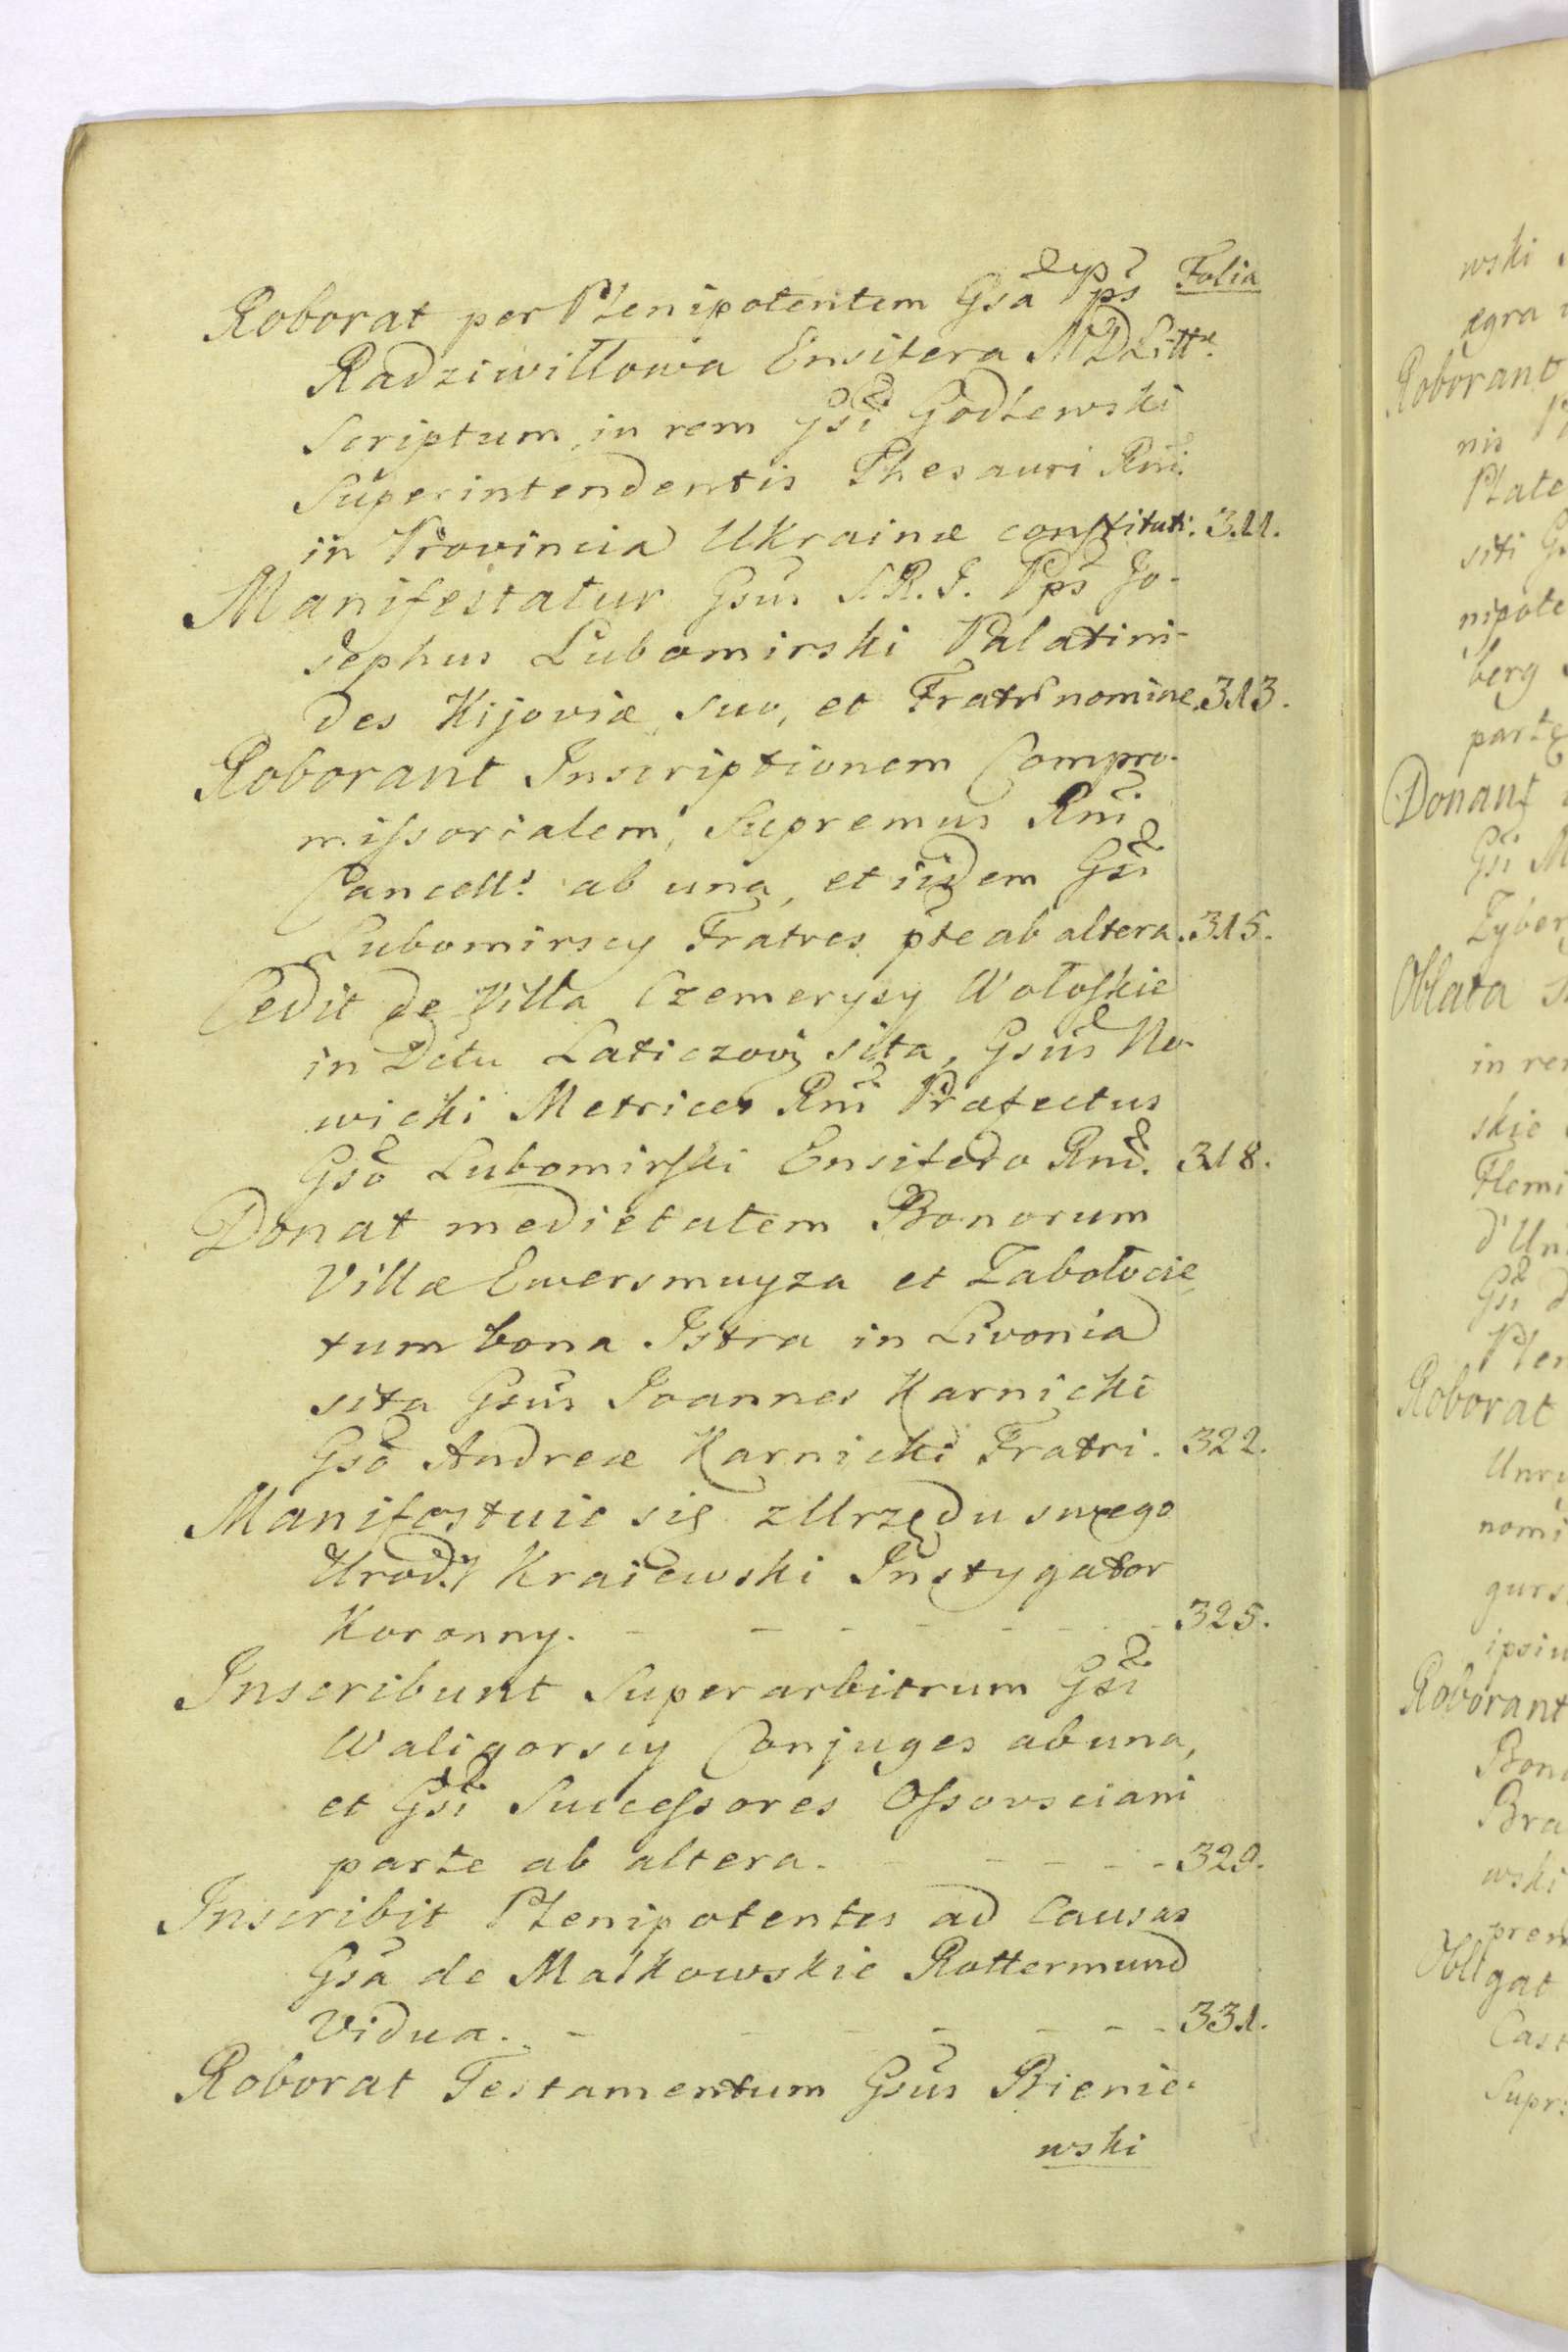 Folia
Roborat per Plenipotentem Gsa Pps
Radziwiłłowa Ensifera MDLitt.
Scriptum in rem Gsi Godlewski
Superintendentis Thesauri Rni.
in Provincia Ukrainæ constituti. 311.
Manifestatur Gsus S.R.I. Pps Jo-
sephus Lubomirski Palatini-
des Kijoviæ suo, et Fratrũ nomine. 313.
Roborant Inscriptionem Compro-
missorialem, Supremus Rni
Cancell. ab una, et iidem Gsi
Lubomirscy Fratres pte ab altera. 315.
Cedit de Villa Czemerysy Wołoskie
in Dctu Laticzov. sita, Gsus No-
wicki Metrices Rni Præfectus
Gso Lubomirski Ensifero Rni. 318.
Donat medietatem Bonorum
Villæ Ewersmuyza et Zabołocie,
tum bona Istra in Livonia
sita Gsus Joannes Karnicki
Gso Andreæ Karnicki Fratri. 322.
Manifestuie się z Urzędu swego
Urodz. Kraiewski Instygator
Koronny. - - - - - - 325.
Inscribunt Superarbitrum Gsi
Waligorscy Conjuges ab una,
et Gsi Successores Ossovsciani
parte ab altera. - - - - 329.
Inscribit Plenipotentes ad Causas
Gsa de Małkowskie Rottermund
Vidua. - - - - - - 331.
Roborat Testamentum Gsus Bienie-
wski
wski
ægra
Roborant
nis
Plate
siti
nipote
berg
parte
Donant
Gsi M
Zyber
Oblata
in rem
skie
Flemi
d'Un
Gsi
Plen
Roborat
Unru
nomi
gurs
ipsiu
Roborant
Bono
Bra
wski
prem
Obligat
Cast
Supr: